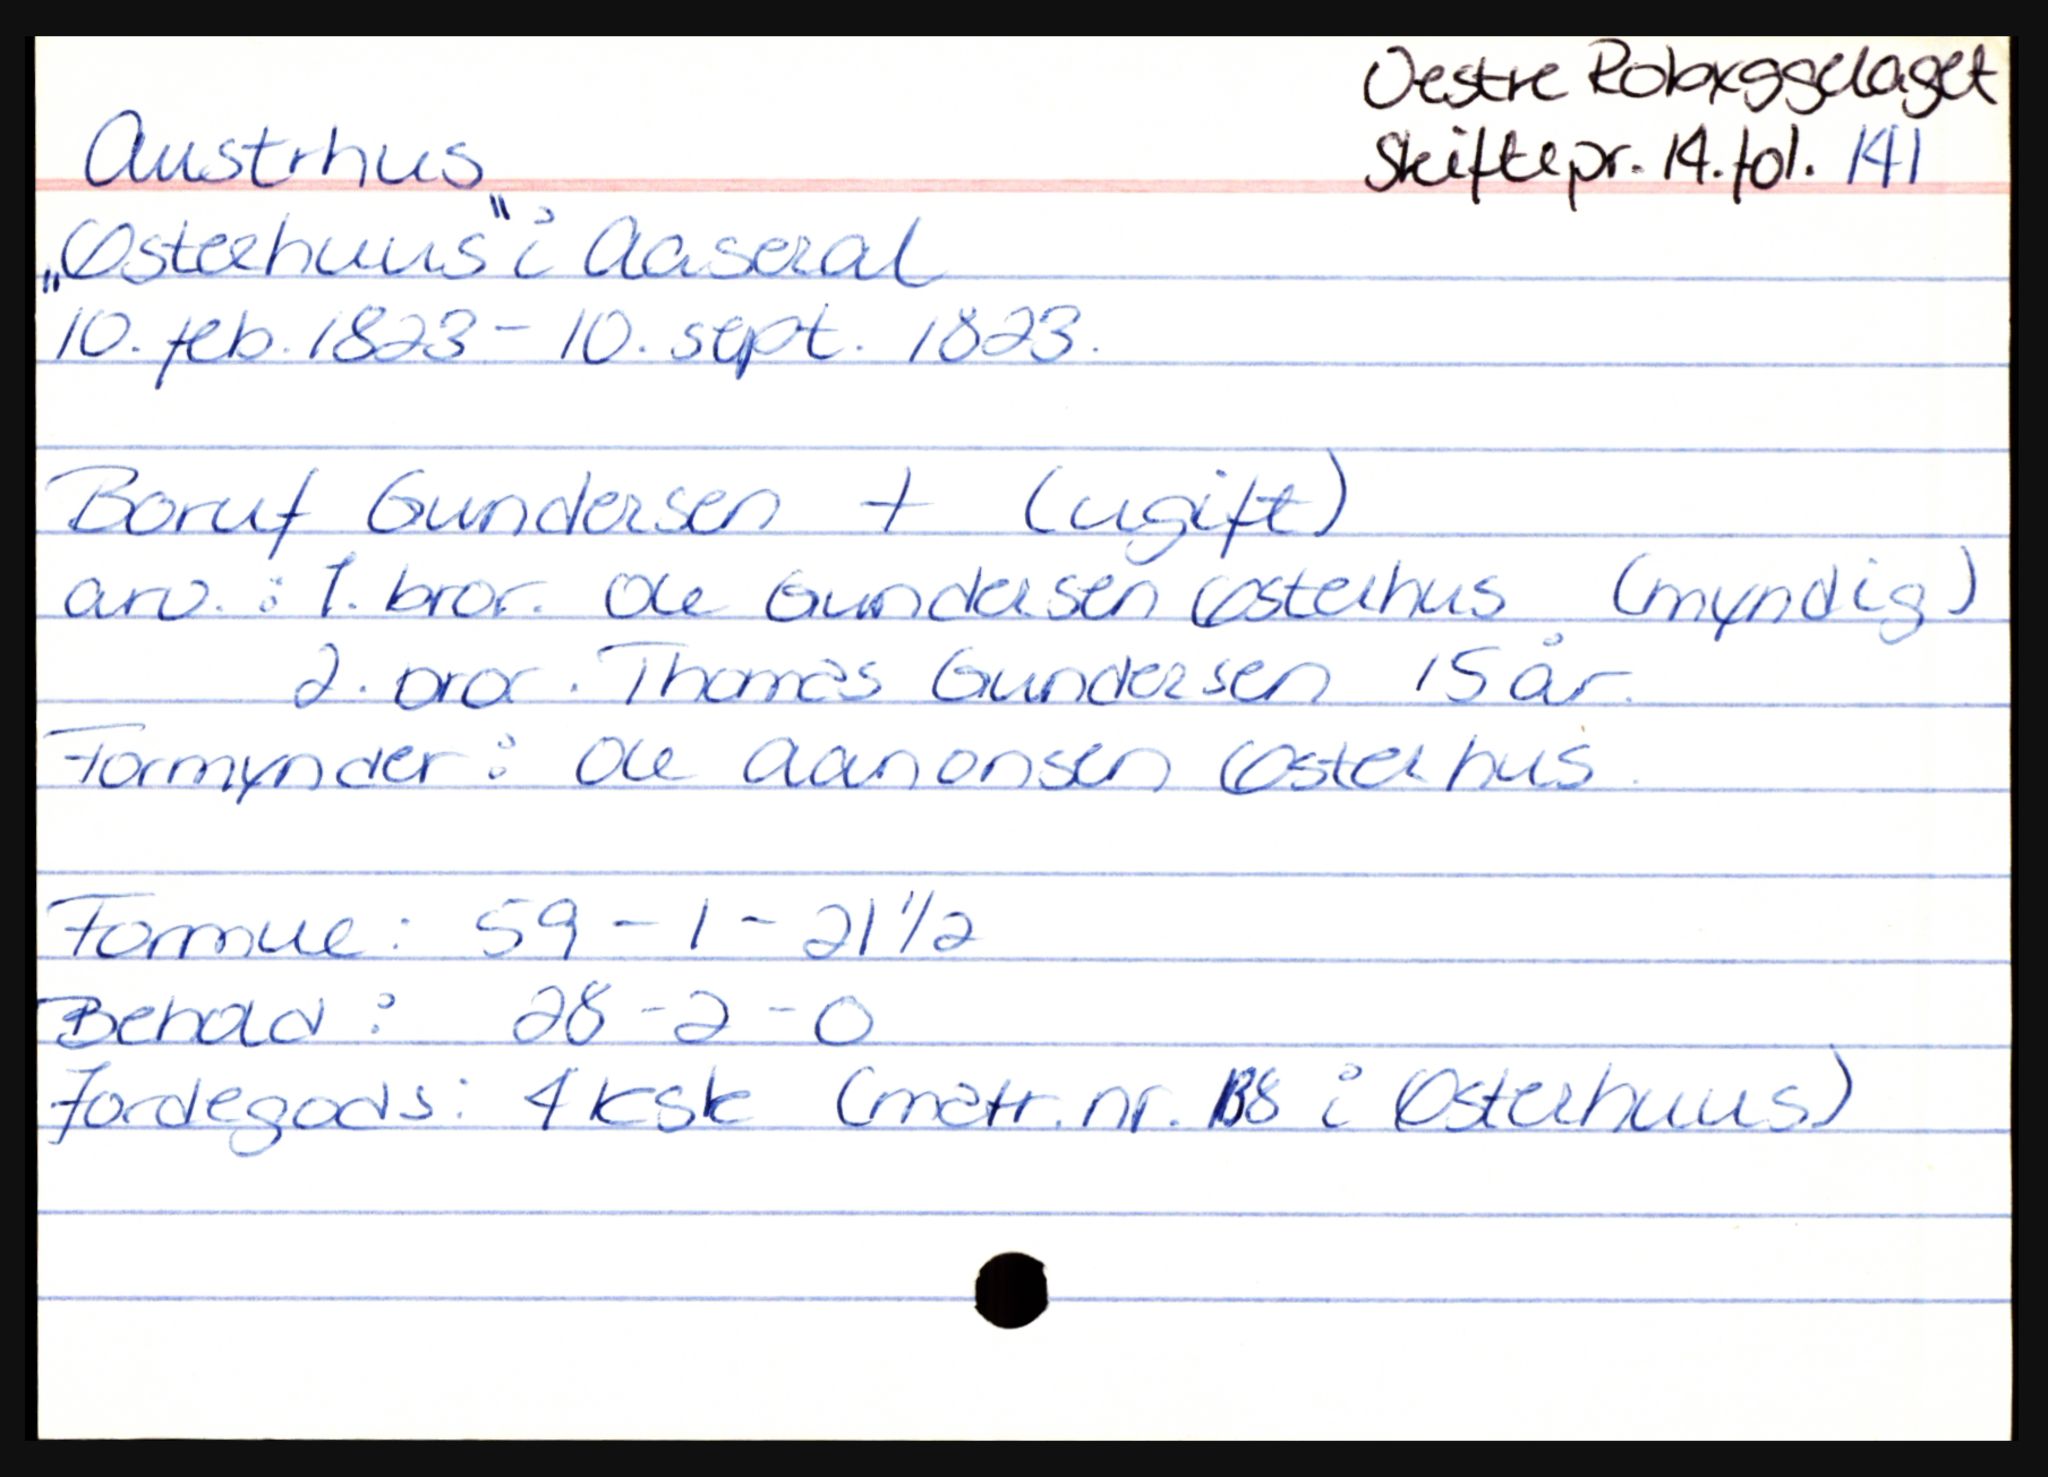 Vestre Robyggelaget
Skiftepr. 14. fol. 141
Austrhus
„Østerhuus" i Aaseral
10. feb. 1823 - 10. sept. 1823.
Boruf Gundersen + (ugift)
arv. : 1. bror. Ole Gundersen Østerhus (myndig)
2. bror. Thomas Gundersen 15 år.
Formynder: Ole Aanonsen Østerhus.
Formue: 59 - 1 - 21 1/2
Behold: 28 - 2 - 0
Jordegods: 4 ksk (matr. nr. 138 i Østerhuus)